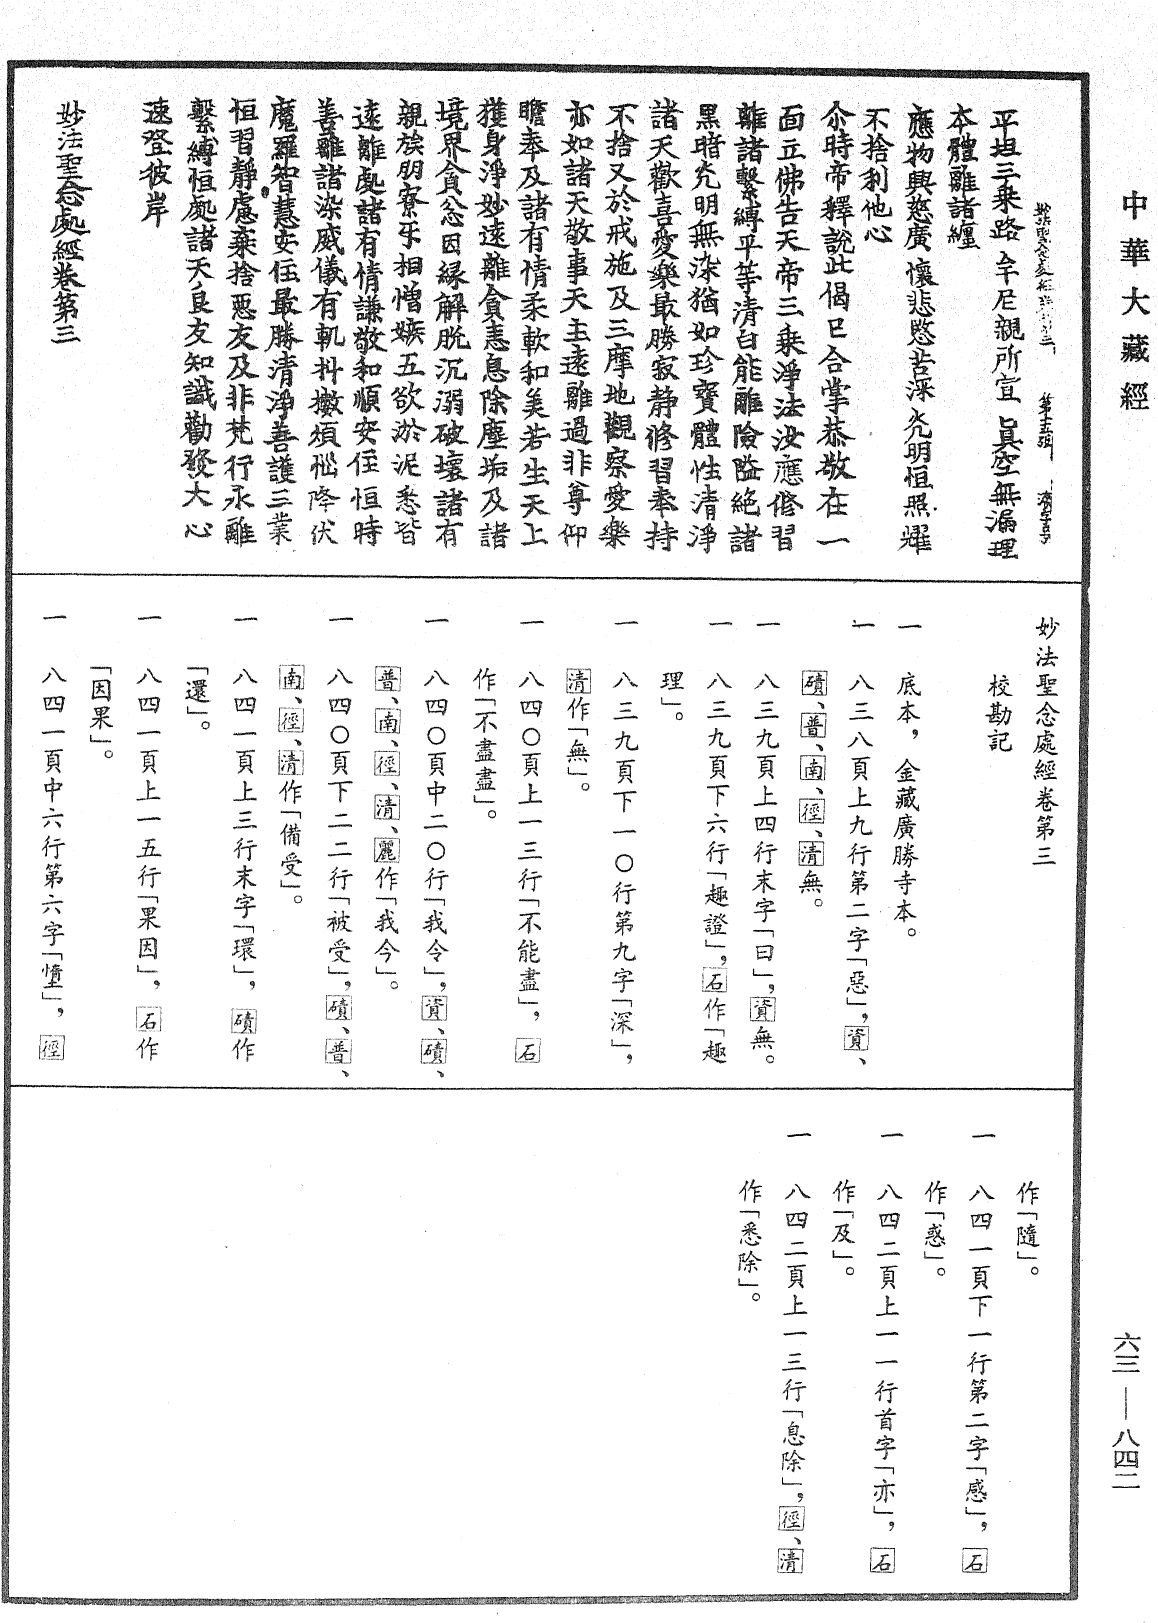 中華大藏經
妙法聖念處經卷第三 第十五張
平坦三乗路 牟尼親所宣 真空無漏理
本體離諸纏
應物興慈廣 懷悲愍苦深 光明恒照耀
不捨利他心
尒時帝釋說此偈已合掌恭敬在一
面立佛告天帝三乗淨法汝應修習
離諸繫縛平等清白能離險隘絕諸
黑暗光明無染猶如珍寶體性清淨
諸天歡喜愛樂最勝寂靜修習奉持
不捨又於戒施及三摩地觀察愛樂
亦如諸天敬事天主遠離過非尊仰
瞻奉及諸有情柔軟和美若生天上
獲身淨妙遠離貪恚息除塵垢及諸
境界貪忿因緣解脫沉溺破壞諸有
親族朋寮互相憎嫉五欲淤泥悉皆
遠離處諸有情謙敬和順安住恒時
善離諸染威儀有軌抖擻煩惱降伏
魔羅智慧安住最勝清淨善護三業
恒習靜慮棄捨惡友及非梵行永離
繫縛恒處諸天良友知識勸發大心
速登彼岸
妙法聖念處經卷第三
妙法聖念處經卷第三
校勘記
一 底本，金藏廣勝寺本。
一 八三八頁上九行第二字「惡」，資、
磧、普、南、徑、清無。
一 八三九頁上四行末字「曰」，資無。
一 八三九頁下六行「趣證」，石作「趣
理」。
一 八三九頁下一〇行第九字「深」，
清作「無」。
一 八四〇頁上一三行「不能盡」，石
作「不盡盡」。
一 八四〇頁中二〇行「我令」，資、磧、
普、南、徑、清、麗作「我今」。
一 八四〇頁下二二行「被受」，磧、普、
南、徑、清作「備受」。
一 八四一頁上三行末字「環」，磧作
「還」。
一 八四一頁上一五行「果因」，石作
「因果」。
一 八四一頁中六行第六字「墮」，徑
作「隨」。
一 八四一頁下一行第二字「感」，石
作「惑」。
一 八四二頁上一一行首字「亦」，石
作「及」。
一 八四二頁上一三行「息除」，徑、清
作「悉除」。
六三—八四二